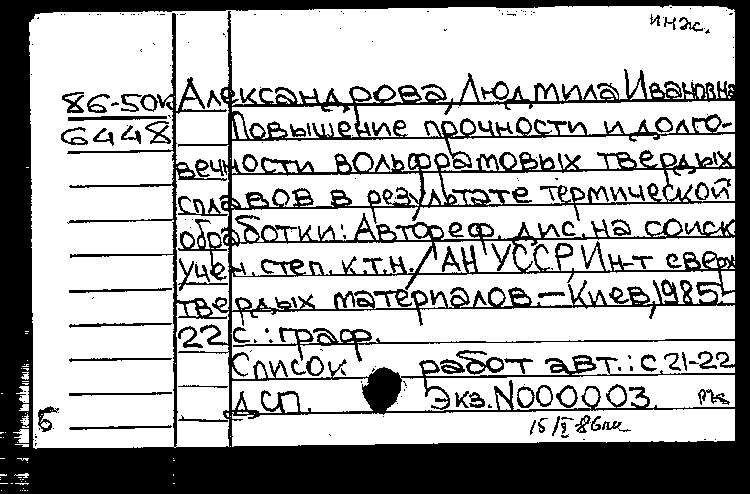 инж.
86-50к Александрова, Людмила Ивановна
6448 Повышение прочности и долго-
вечности вольфрамовых твердых
сплавов в результате термической
обработки: Автореф. дис. на соиск
учен. степ. к.т.н. / АН УССР, Ин-т сверх
твердых материалов. — Киев, 1985—
22 с. : граф.
Список работ авт.: с. 21-22
ДСП. Экз. N000003.
Б